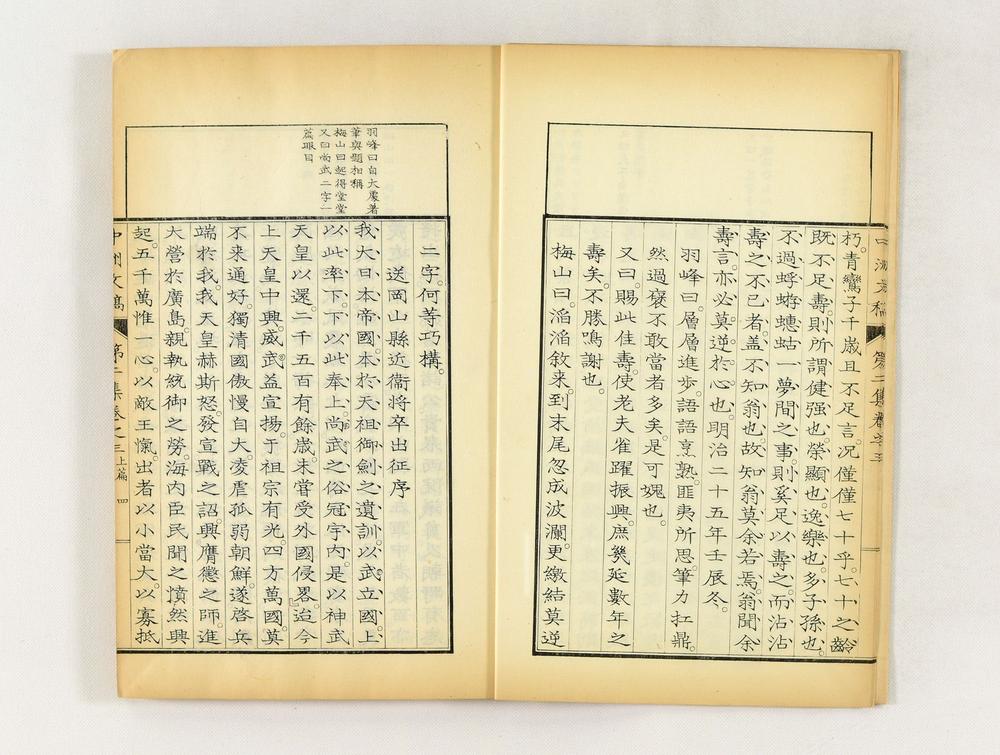 朽。青鸞子千歲且不足言。況僅僅七十乎。七十之齡
既不足壽。則所謂健强也。榮顯也。逸樂也。多子孫也。
不過蜉蝣蟪蛄一夢間之事。則奚足以壽之。而沾沾
壽之不已者。盖不知翁也。故知翁莫余若焉。翁聞余
壽言。亦必莫逆於心也。明治二十五年壬辰冬。
羽峰曰。層層進步。語語烹熟。匪夷所思。筆力扛鼎。
然過襃不敢當者多矣。是可媿也。
又曰。賜此佳壽。使老夫雀躍振興。庶幾延數年之
壽矣。不勝鳴謝也。
梅山曰。滔滔敘來。到末尾忽成波瀾。更繳結莫逆
二字。何等巧構。
送岡山縣近衞將卒出征序
我大日本帝國。本於天祖御劍之遺訓。以武立國。上
以此率下。下以此奉上。尚武之俗冠宇內。是以神武
天皇以還。二千五百有餘歲。未嘗受外國侵畧。迨今
上天皇中興。威武益宣揚。于祖宗有光。四方萬國。莫
不来通好。獨清國傲慢自大。凌虐孤弱朝鮮。遂啓兵
端於我。我天皇赫斯怒。發宣戰之詔。興膺懲之師。進
大營於廣島。親執統御之勞。海內臣民聞之。憤然興
起。五千萬惟一心。以敵王愾。出者以小當大。以寡抵
羽峰曰自大處著
筆與題相稱
梅山曰起得堂堂
又曰尚武二字一
篇眼目
中洲文稿
第二集卷之三上篇
四